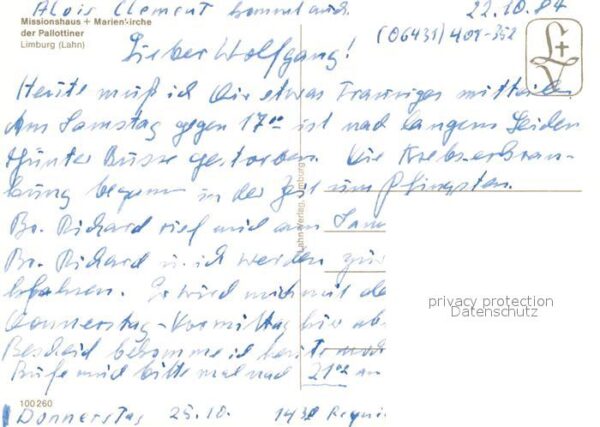 Alois Clement kommt auch
22.10.84
Missionshaus + Marienkirche
der Pallottiner
Limburg (Lahn)
(06431) 401-352
Lieber Wolfgang!
Heute muß ich Dir etwas Trauriges mitteilen.
Am Samstag gegen 17°° ist nach langem Leiden
Günter Busse gestorben. Die Krebserkran-
kung begann in der Zeit um Pfingsten.
Br. Richard rief mich am Sam
Br. Richard u. ich werden zur
Er wird mich mit de
Donnerstag-Vormittag hier ab
Bescheid bekomme ich heute noch
Rufe mich bitte mal nach 21°° an
Lahn-Verlag, Limburg
privacy protection
Datenschutz
100 260
Donnerstag 25.10. 14³⁰ Requi